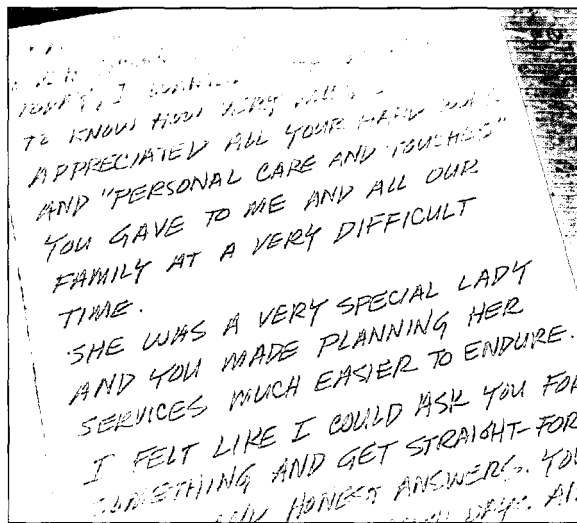 TO KNOW HOW VERY MUCH
APPRECIATED ALL YOUR HARD WORK
AND "PERSONAL CARE AND TOUCHES"
YOU GAVE TO ME AND ALL OUR
FAMILY AT A VERY DIFFICULT
TIME.
SHE WAS A VERY SPECIAL LADY
AND YOU MADE PLANNING HER
SERVICES MUCH EASIER TO ENDURE.
I FELT LIKE I COULD ASK YOU FOR
SOMETHING AND GET STRAIGHT-FOR
HONEST ANSWERS. YOU